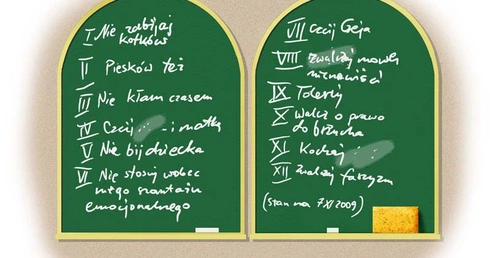 I Nie zabijaj
kotków
II Piesków też
III Nie kłam czasem
IV Czcij - i matkę
V Nie bij dziecka
VI Nie stosuj wobec
niego szantażu
emocjonalnego
VII Czcij Geja
VIII zwalczaj mowę
nienawiści
IX Toleruj
X Walcz o prawo
do brzucha
XI Kochaj
XII Zwalczaj faszyzm
(stan na 7 XI 2009)